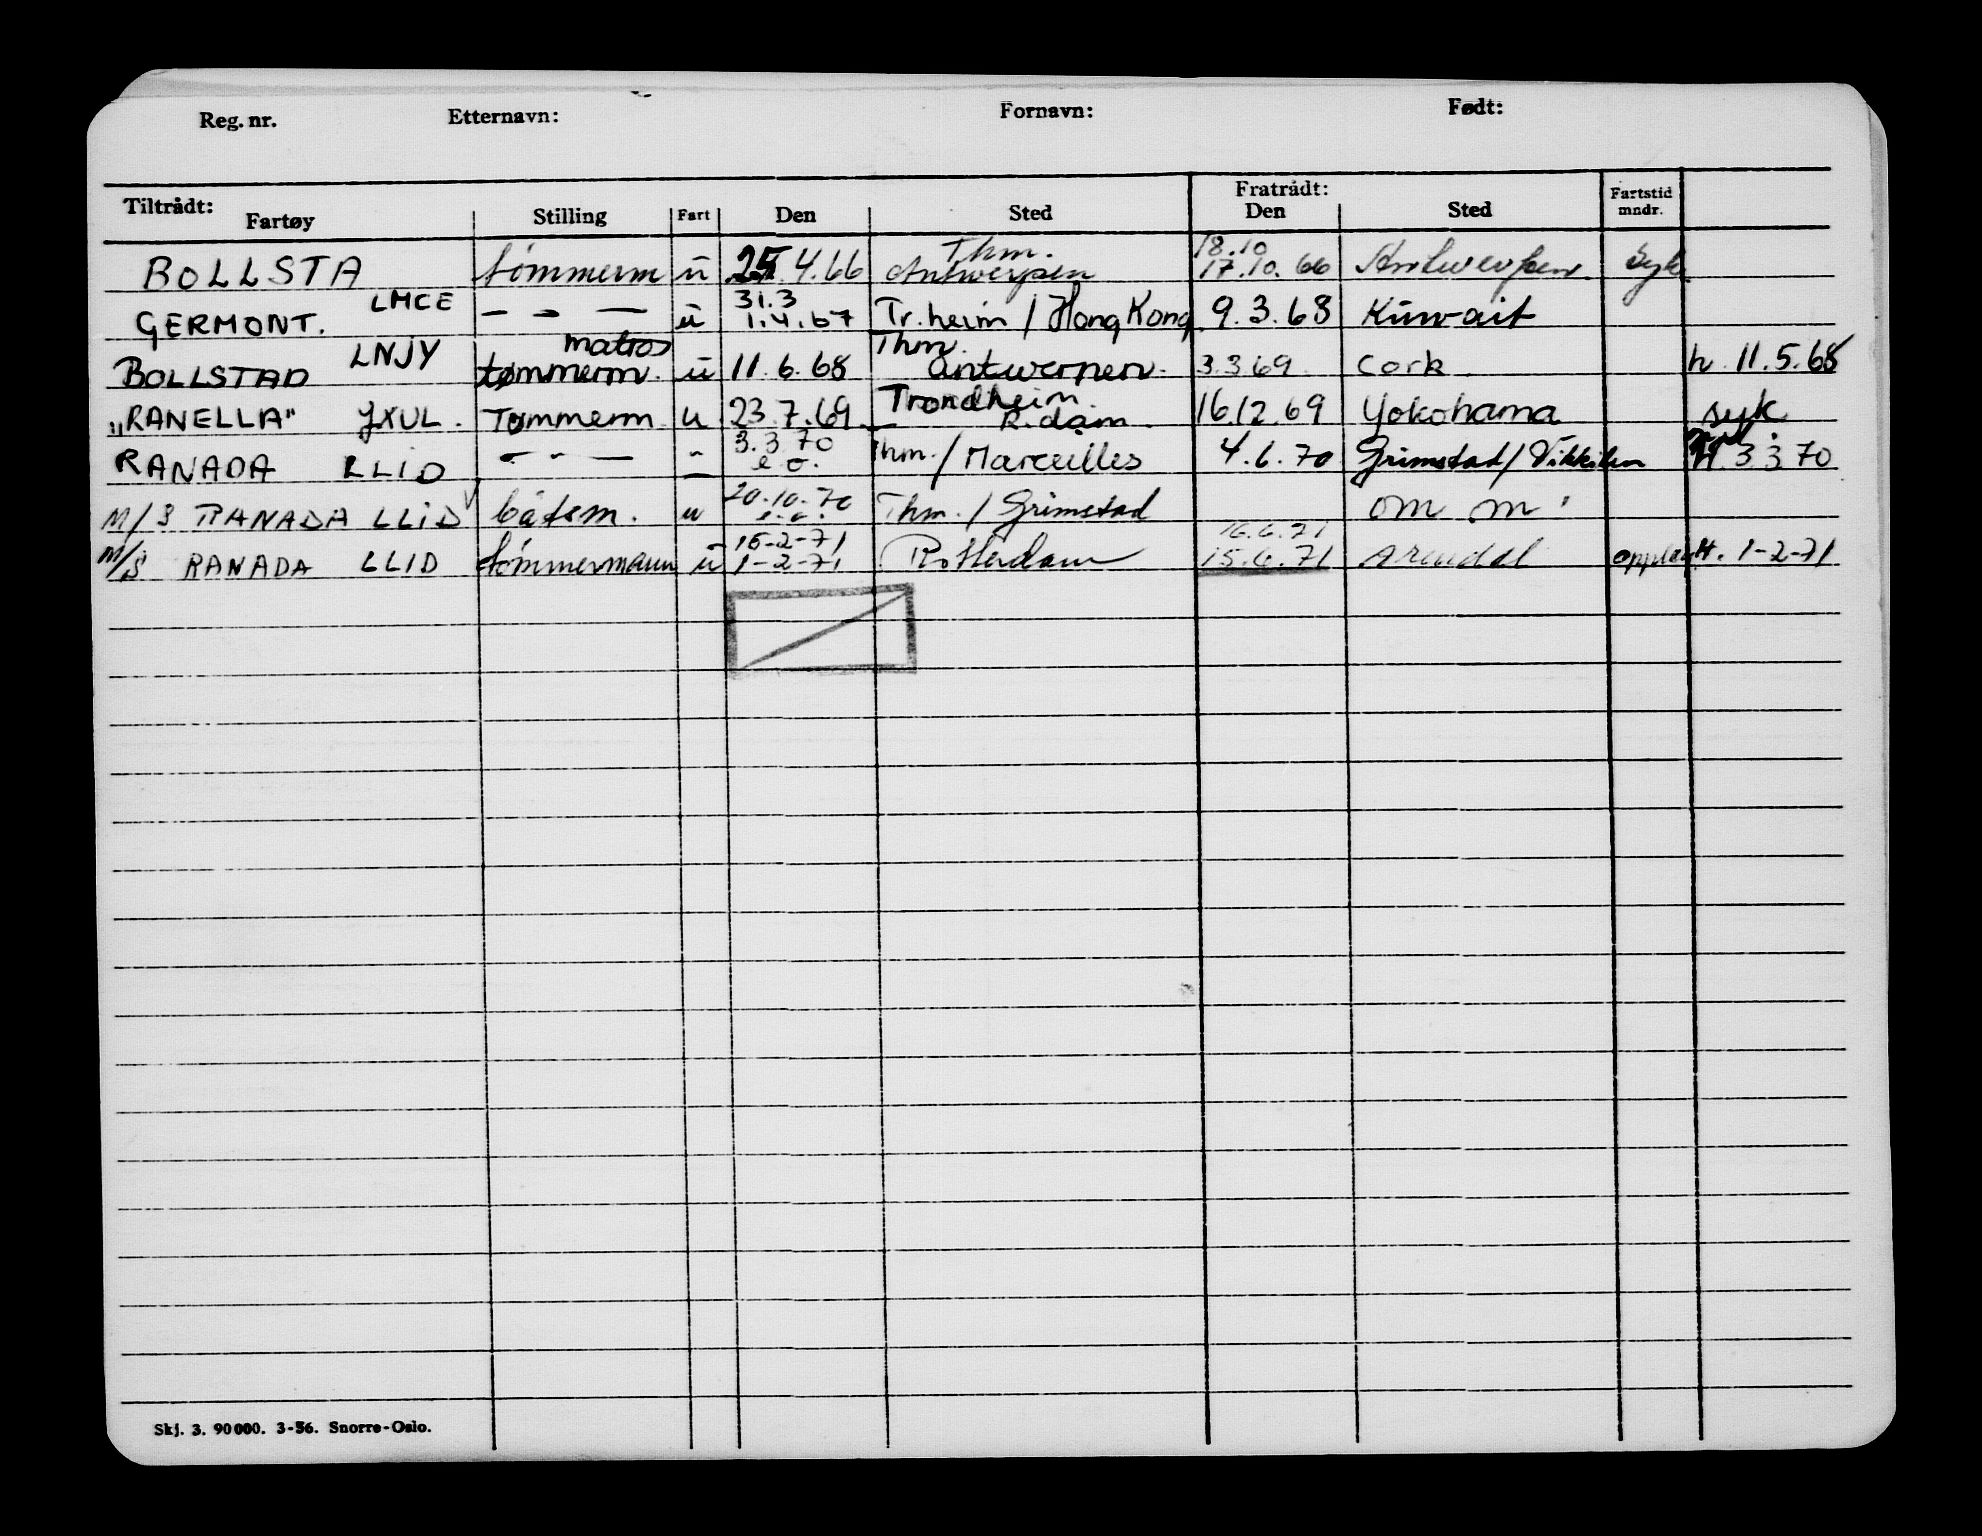 Reg. nr. Etternavn: Fornavn: Født:
Tiltrådt: Fratrådt: Fartstid
Fartøy Stilling Fart Den Sted Den Sted mndr.
Thm. 18.10
BOLLSTA tømmerm u 25.4.66 Antwerpen 17.10.66 Antwerpen Syk
LMCE 31.3
GERMONT. — — — u 1.4.67 Tr.heim / Hong Kong 9.3.68 Kuwait
LNJY matros Thm.
BOLLSTAD tømmerm. u 11.6.68 Antwerpen. 3.3.69 Cork. h. 11.5.68
Trondheim.
"RANELLA" JXUL. Tømmerm. u 23.7.69 R.dam. 16.12.69 Yokohama syk
3.3.70
RANADA LLID — " — " e.o. Thm. / Marceilles 4.6.70 Grimstad / Vikkilen H. 3.3.70
20.10.70
M/S RANADA LLID båtsm. u e.o. Thm. / Grimstad om m
15-2-71 16.6.71
M/S RANADA LLID tømmermann u 1-2-71 Rotterdam 15.6.71 Arendal opplag H. 1-2-71
Skj. 3. 90000. 3-56. Snorre-Oslo.